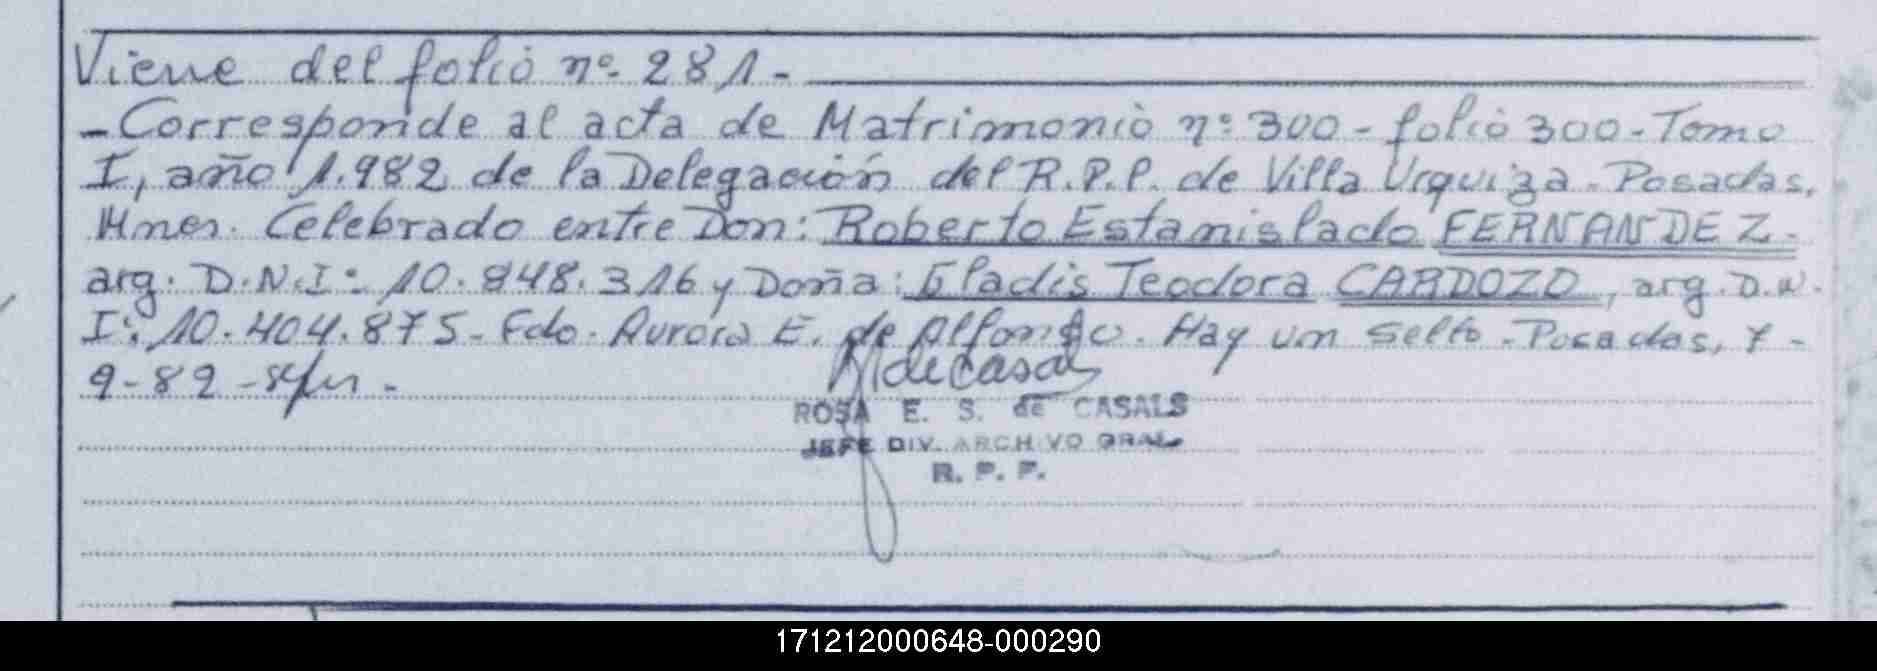 Viene del folio nº 281 -
- Corresponde al acta de Matrimonio nº 300 - folio 300 - Tomo
I, año 1.982 de la Delegación del R.P.P. de Villa Urquiza - Posadas,
Mnes. Celebrado entre Don: Roberto Estanislado FERNANDEZ -
arg. D.N.I: 10.848.316 y Doña: Gladis Teodora CARDOZO, arg. D.N.
I: 10.404.875 - Fdo. Aurora E. de Alfonso. Hay un sello - Posadas, 7 -
9 - 82 -
ROSA E. S. de CASALS
JEFE DIV. ARCHIVO GRAL.
R. P. P.
171212000648-000290